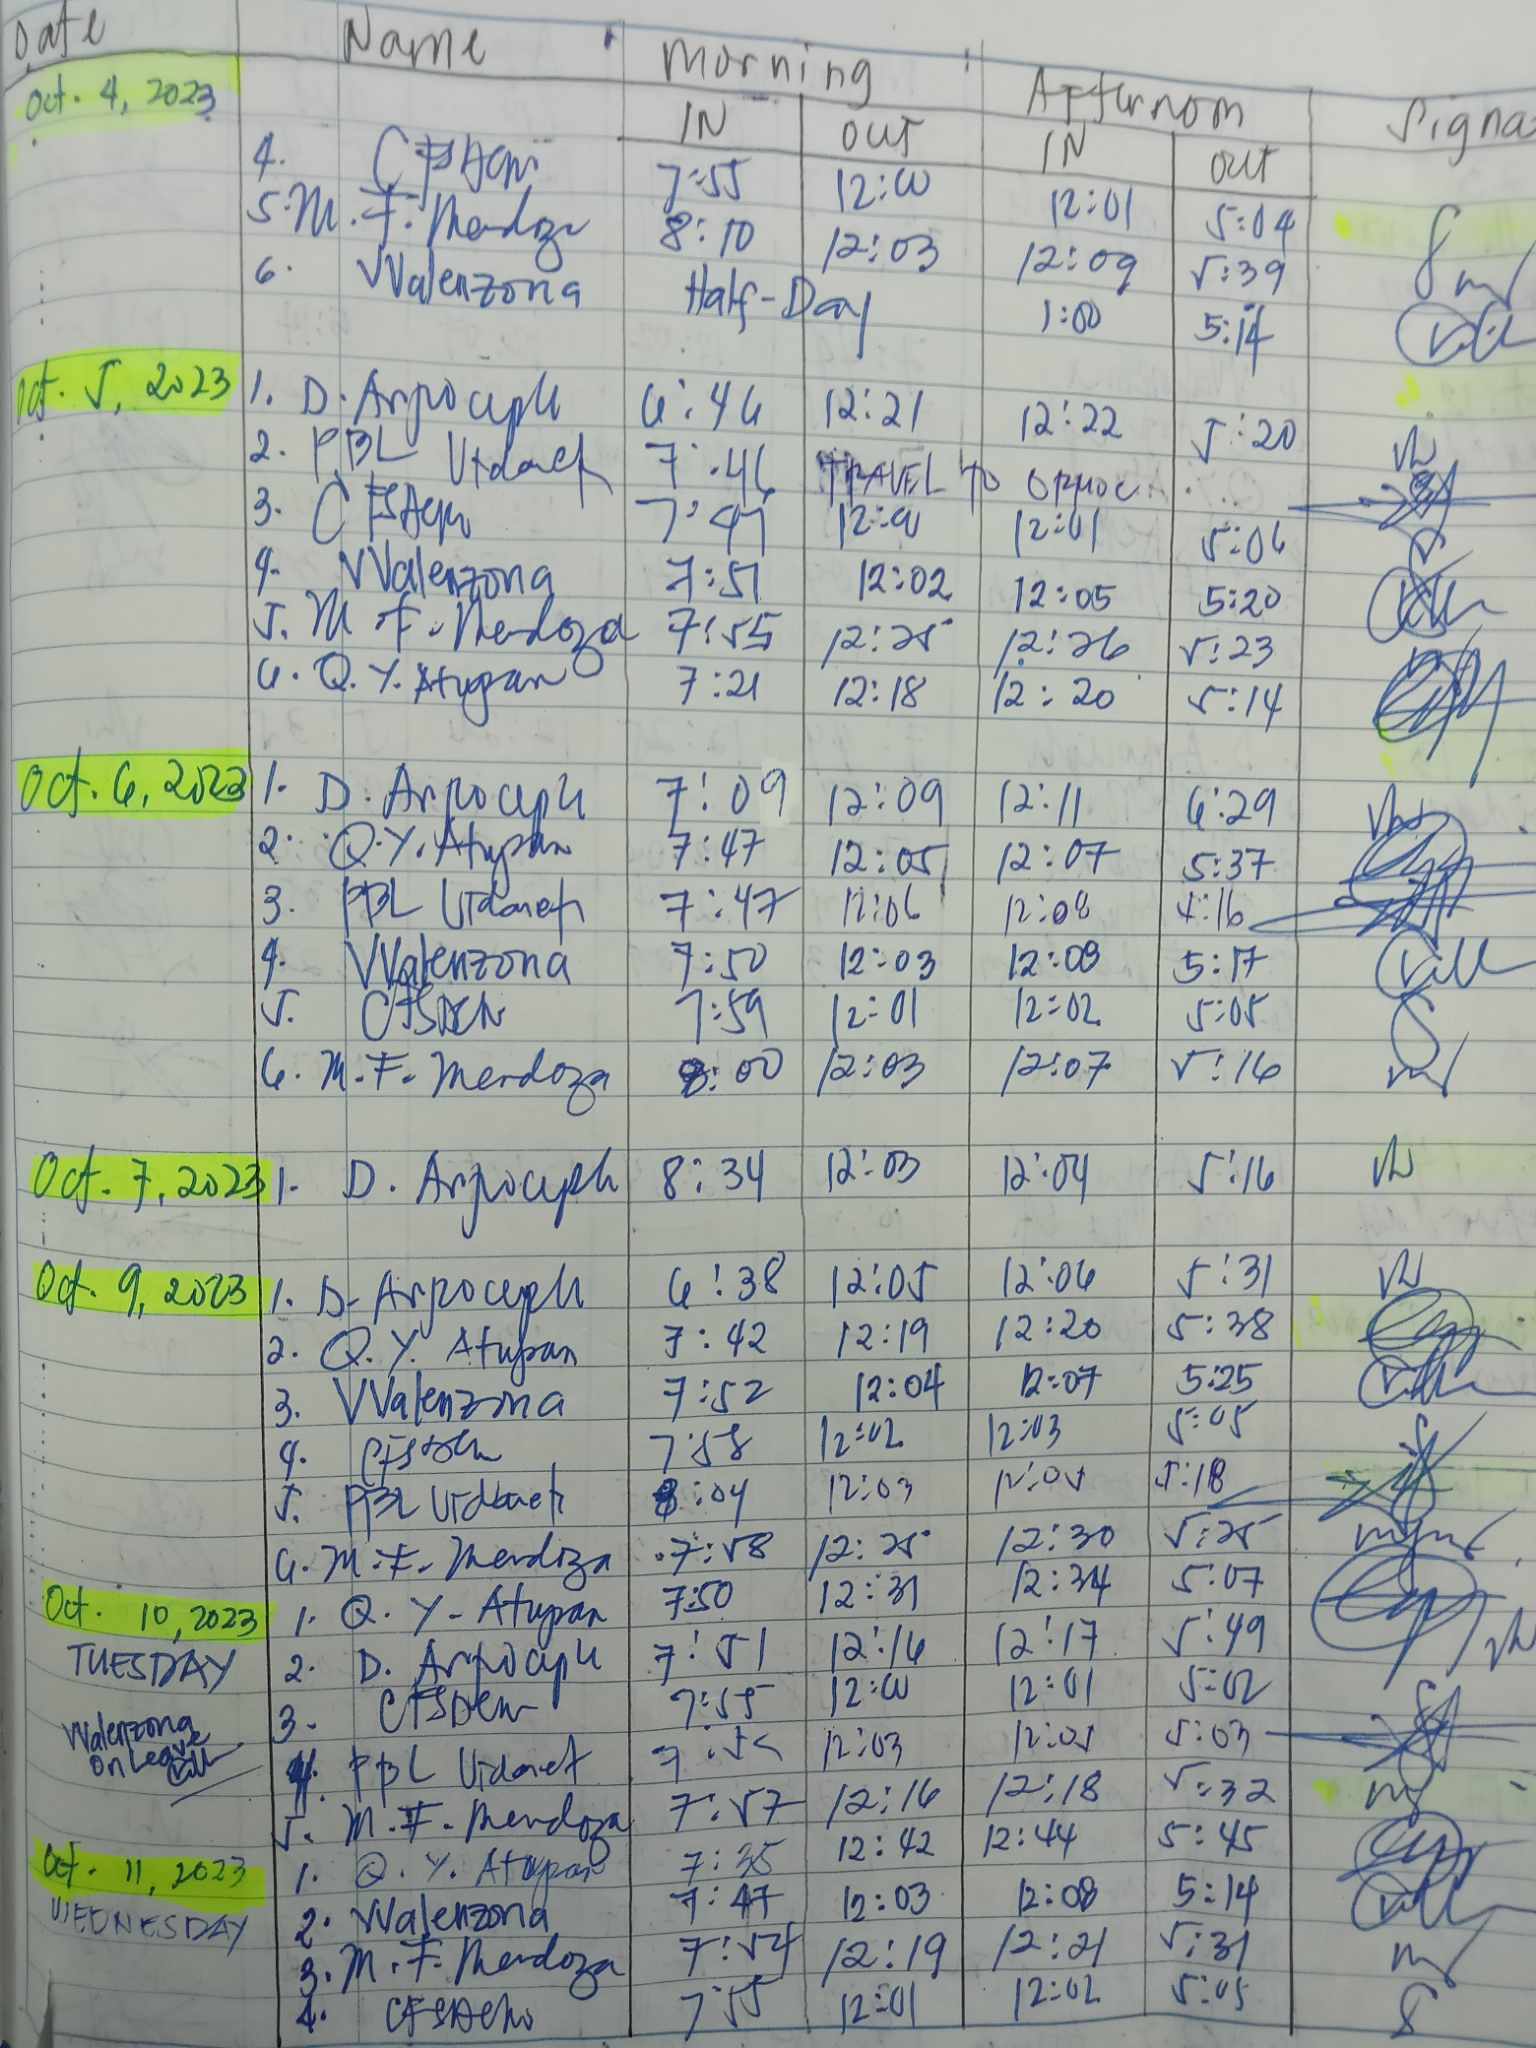 Date Name Morning Afternoon Signa
IN OUT IN OUT
Oct. 4, 2023
4. 7:55 12:00 12:01 5:04
5. M. F. Mendoza 8:10 12:03 12:09 5:39
6. VValenzona Half-Day 1:00 5:14
Oct. 5, 2023 1. D. 6:46 12:21 12:22 5:20
2. PBL 7:46 TRAVEL TO ORMOC
3. 7:47 12:00 12:01 5:06
4. VValenzona 7:51 12:02 12:05 5:20
5. M. F. Mendoza 7:55 12:25 12:26 5:23
6. Q. Y. Atupan 7:21 12:18 12:20 5:14
Oct. 6, 2023 1. D. 7:09 12:09 12:11 6:29
2. Q. Y. Atupan 7:47 12:05 12:07 5:37
3. PBL 7:47 12:06 12:08 4:16
4. VValenzona 7:50 12:03 12:09 5:17
5. 7:59 12:01 12:02 5:05
6. M. F. Mendoza 8:00 12:03 12:07 5:16
Oct. 7, 2023 1. D. 8:34 12:03 12:04 5:16
Oct. 9, 2023 1. D. 6:38 12:05 12:06 5:31
2. Q. Y. Atupan 7:42 12:19 12:20 5:38
3. VValenzona 7:52 12:04 12:07 5:25
4. 7:58 12:02 12:03 5:05
5. PBL 8:04 12:03 12:05 5:18
6. M. F. Mendoza 7:58 12:25 12:30 5:25
Oct. 10, 2023 1. Q. Y. Atupan 7:50 12:31 12:34 5:07
TUESDAY 2. D. 7:51 12:16 12:17 5:49
3. 7:55 12:00 12:01 5:02
VValenzona
On Leave
4. PBL 12:03 12:05 5:03
5. M. F. Mendoza 7:57 12:16 12:18 5:32
Oct. 11, 2023 1. Q. Y. Atupan 7:35 12:42 12:44 5:45
WEDNESDAY 2. VValenzona 7:47 12:03 12:08 5:14
3. M. F. Mendoza 7:54 12:19 12:21 5:31
4. 7:55 12:01 12:02 5:05